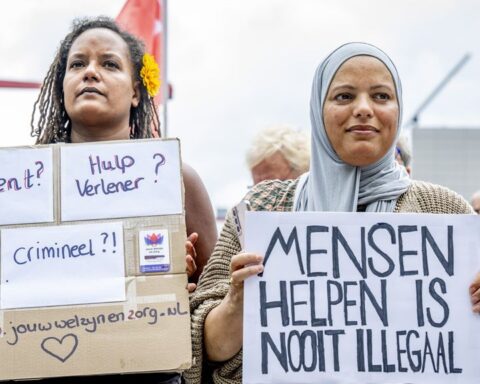 Hulp ?
Verlener ?
Crimineel ?!
.jouwwelzynenzorg.NL
MENSEN
HELPEN IS
NOOIT ILLEGAAL